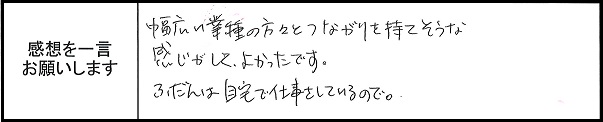 感想を一言
お願いします
幅広い業種の方々とつながりを持てそうな
感じがして、よかったです。
ふだんは自宅で仕事をしているので。